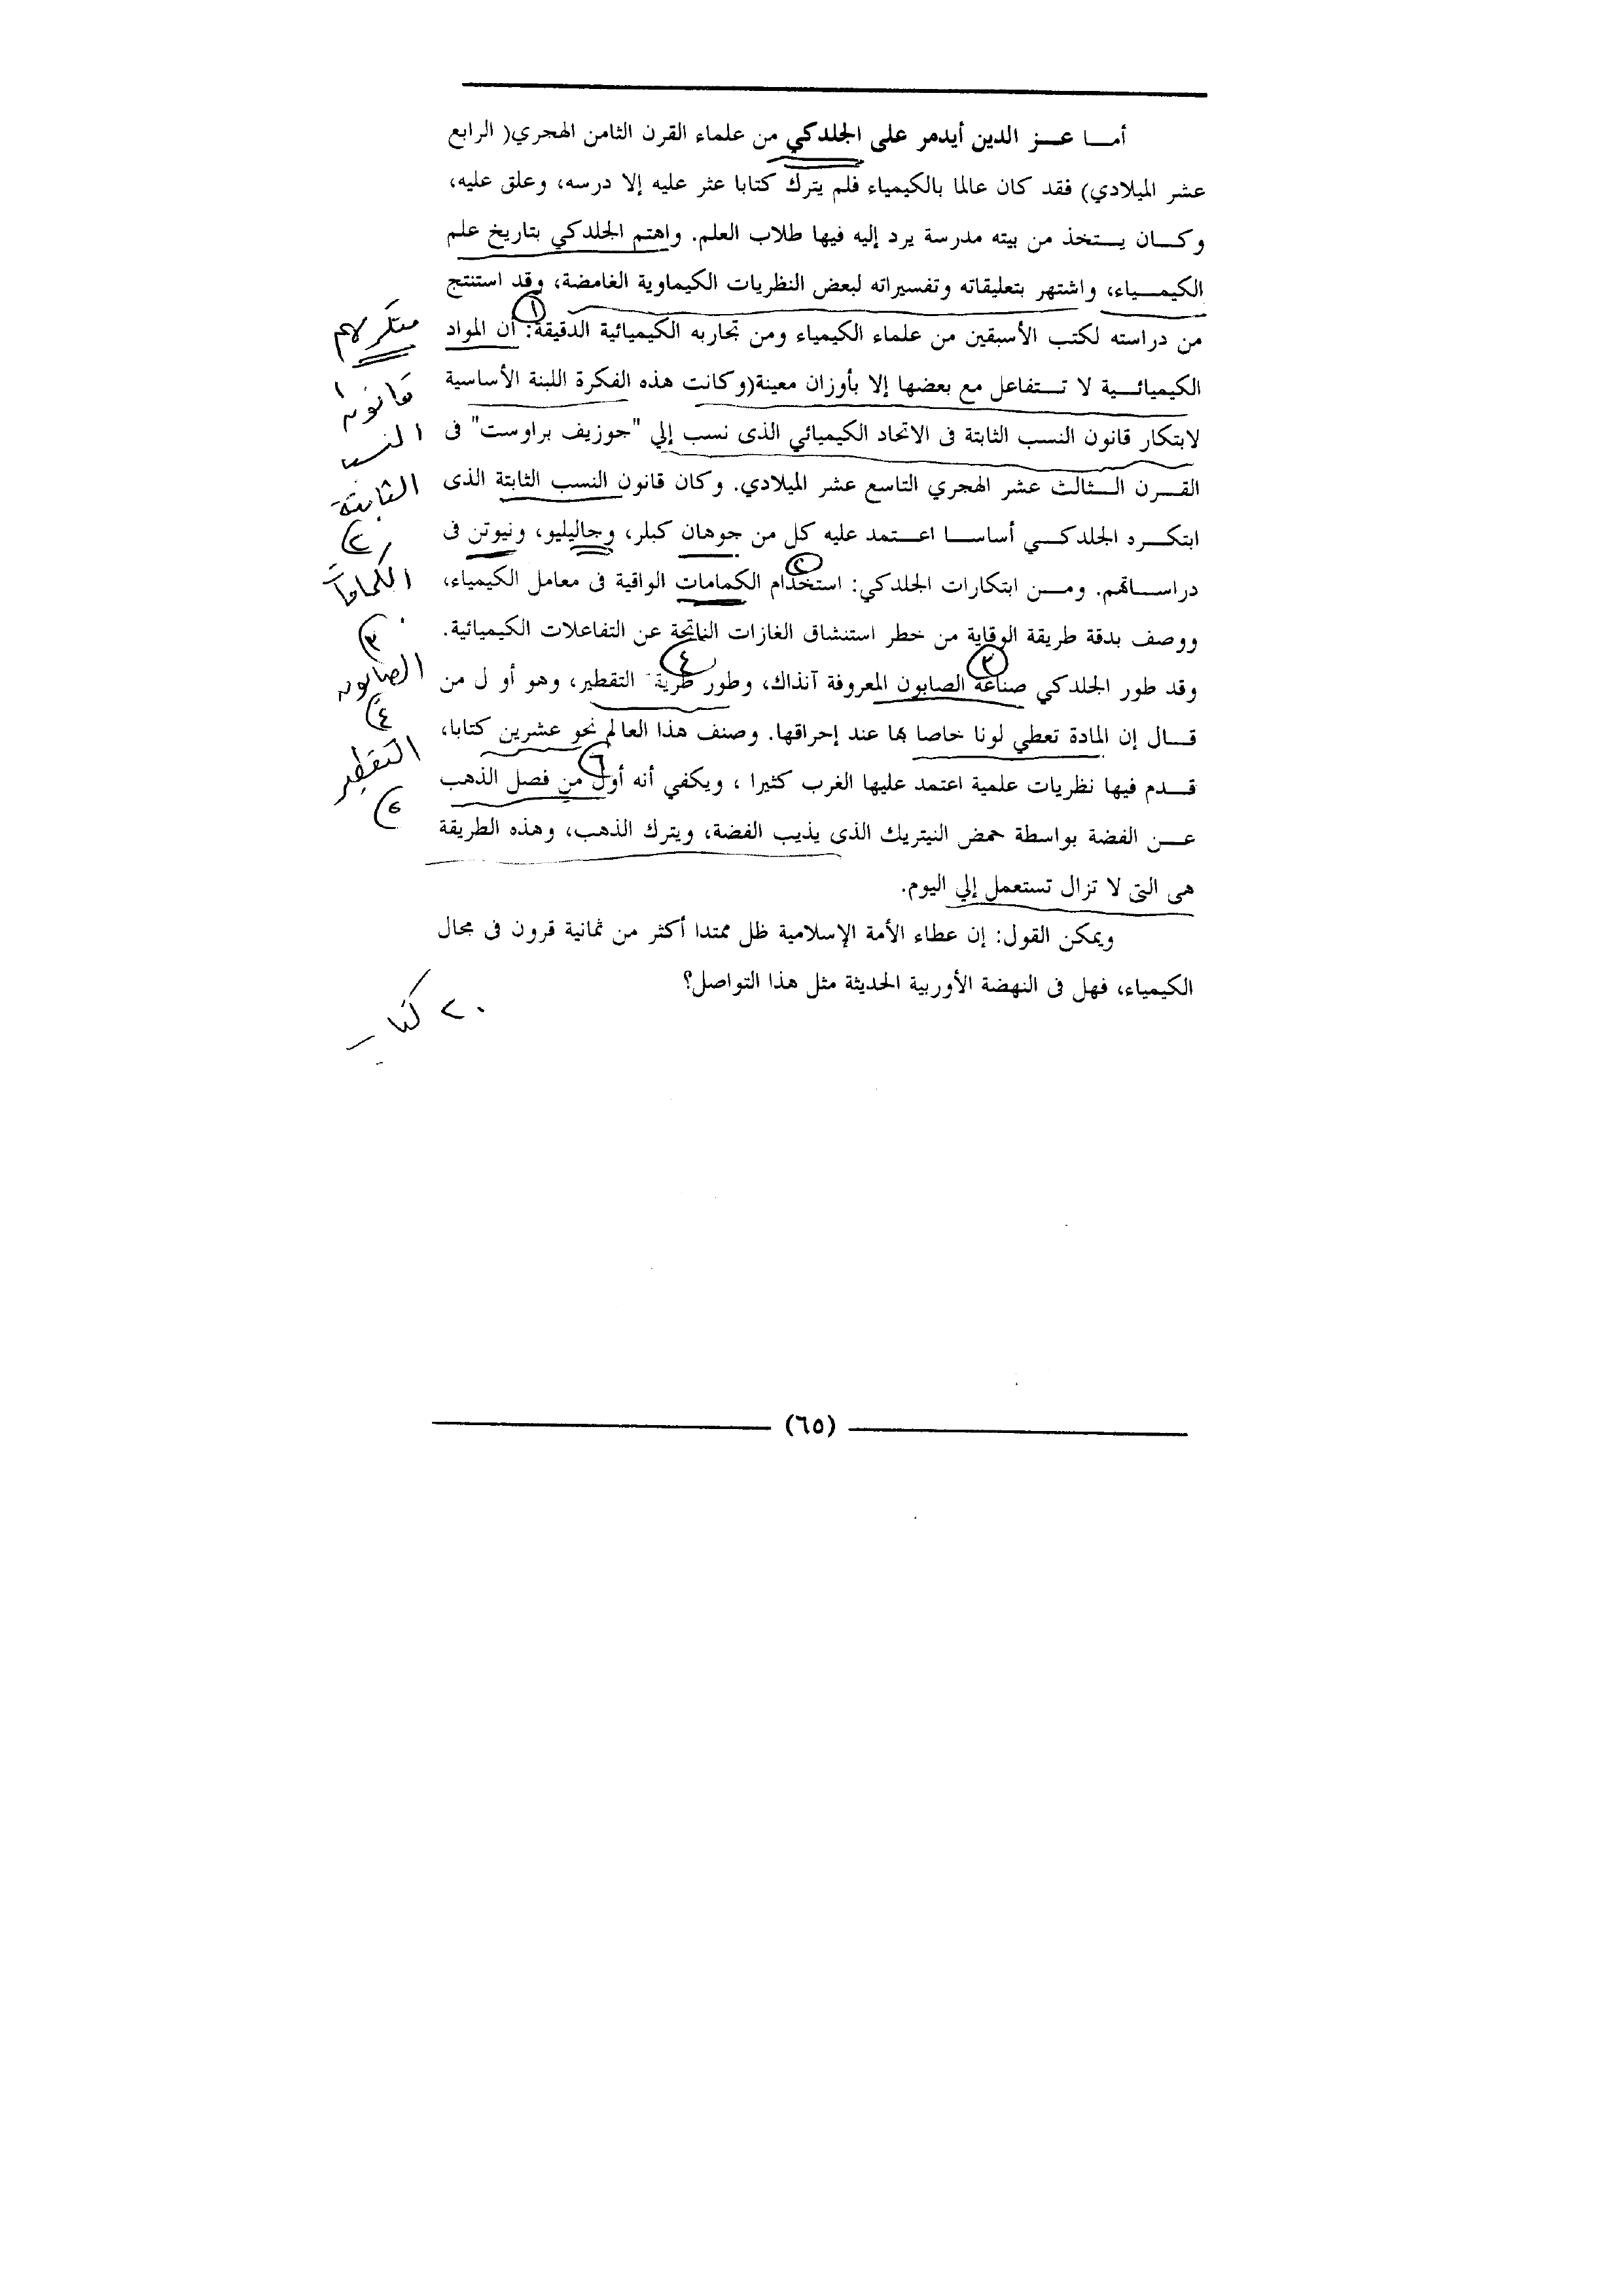 أما عز الدين أيدمر على الجلدكي من علماء القرن الثامن الهجري( الرابع
عشر الميلادي) فقد كان عالما بالكيمياء فلم يترك كتابا عثر عليه إلا درسه، وعلق عليه،
وكان يستخذ من بيته مدرسة يرد إليه فيها طلاب العلم. واهتم الجلدكي بتاريخ علم
الكيمياء، واشتهر بتعليقاته وتفسيراته لبعض النظريات الكيماوية الغامضة، وقد استنتج
من دراسته لكتب الأسبقين من علماء الكيمياء ومن تجاربه الكيميائية الدقيقة: أن المواد
الكيميائية لا تتفاعل مع بعضها إلا بأوزان معينة(وكانت هذه الفكرة اللبنة الأساسية
لابتكار قانون النسب الثابتة فى الاتحاد الكيميائي الذى نسب إلي "جوزيف براوست" فى
القرن الثالث عشر الهجري التاسع عشر الميلادي. وكان قانون النسب الثابتة الذى
ابتكره الجلدكي أساسا اعتمد عليه كل من جوهان كبلر، وجاليليو، ونيوتن فى
دراساتهم. ومن ابتكارات الجلدكي: استخدام الكمامات الواقية فى معامل الكيمياء،
ووصف بدقة طريقة الوقاية من خطر استنشاق الغازات الناتجة عن التفاعلات الكيميائية.
وقد طور الجلدكي صناعة الصابون المعروفة آنذاك، وطور طريقة التقطير، وهو أو ل من
قال إن المادة تعطي لونا خاصا بها عند إحراقها. وصنف هذا العالم نحو عشرين كتابا،
قدم فيها نظريات علمية اعتمد عليها الغرب كثيرا ، ويكفي أنه أول من فصل الذهب
عن الفضة بواسطة حمض النيتريك الذى يذيب الفضة، ويترك الذهب، وهذه الطريقة
هى التى لا تزال تستعمل إلي اليوم.
ويمكن القول: إن عطاء الأمة الإسلامية ظل ممتدا أكثر من ثمانية قرون فى مجال
الكيمياء، فهل فى النهضة الأوربية الحديثة مثل هذا التواصل؟
قانون
النسب
الثابتة
٢)
الكمامات
٣)
الصابون
٤)
التقطير
٥)
٢٠ كتاب
(٦٥)